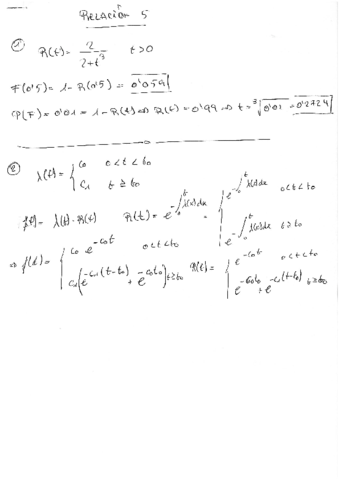 RELACIÓN 5
1) R(t) = 2/(2+t³) t>0
F(0'5) = 1 - R(0'5) = 0'059
P(F) = 0'01 = 1 - R(t) ⇒ R(t) = 0'99 ⇒ t = ³√0'01 = 0'2724
2) λ(t) = { C₀ 0<t<t₀
C₁ t ≥ t₀
f(t) = λ(t)·R(t) R(t) = e^{-∫₀^t λ(x)dx} = { e^{-∫₀^t λ(x)dx} 0<t<t₀
e^{-∫₀^t λ(x)dx} t≥t₀
⇒ f(t) = { C₀ e^{-C₀t} 0<t<t₀
C₁[e^{-C₁(t-t₀)} + e^{-C₀t₀}] t≥t₀
R(t) = { e^{-C₀t} 0<t<t₀
e^{-C₀t₀} + e^{-C₁(t-t₀)} t≥t₀